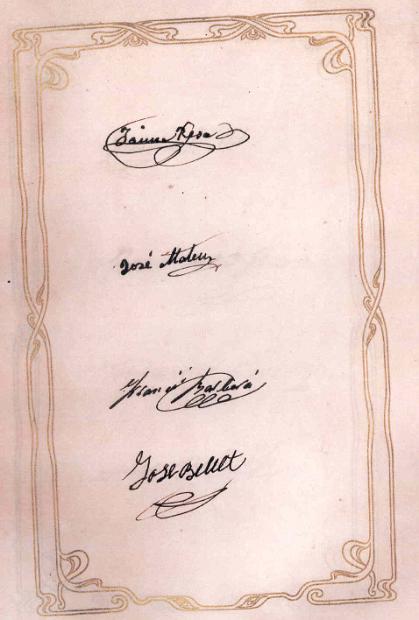 Jaime Rosa
José Mateu
Franco Barberá
Jose Bellet